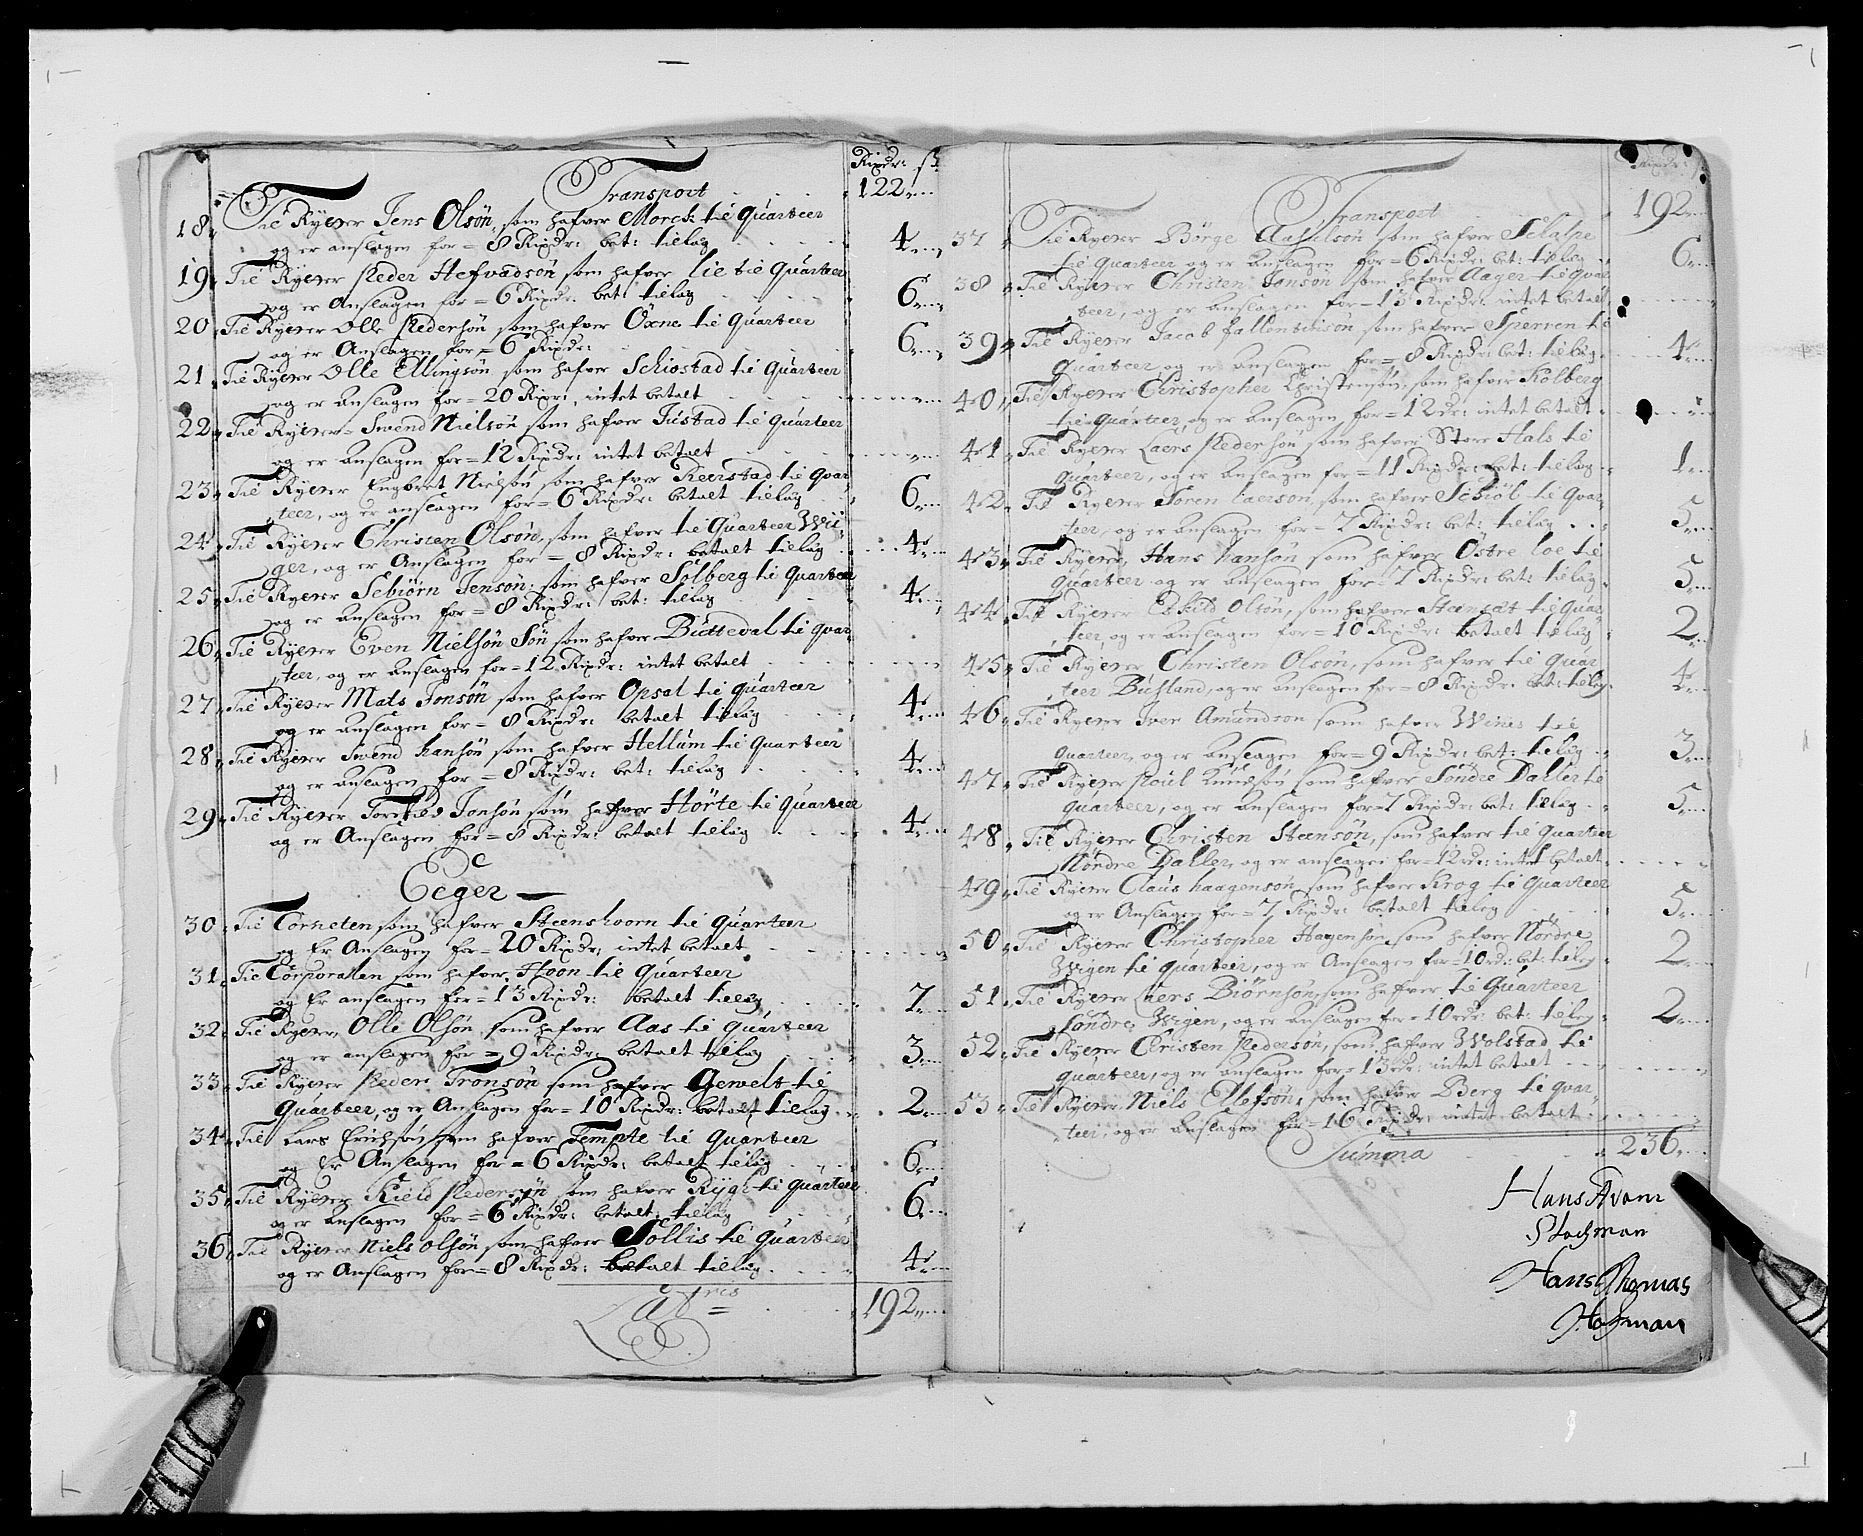 Rixdr: sk
Transport 122
18 Til Ryter Jens Olsøn, som hafver Morck til quarteer
og er anslagen for = 8 Rixdr: bet: tillag 4
19 Til Ryter Peder Hefvadsøn som hafver Lie til quarteer
og er Anslagen for = 6 Rixdr: bet: tillag 6
20 Til Ryter Olle Pedersøn som hafver Oxne til quarteer
og er Anslagen for = 6 Rixdr: 6
21 Til Ryter Olle Ellingsøn som hafver Schiøstad til quarteer
og er anslagen for = 20 Rixdr, intet betalt
22 Til Ryter Swend Nielsøn som hafver Tustad til quarteer
og er anslagen for = 12 Rixdr: intet betalt
23 Til Ryter Engbret Nielsøn som hafver Keerstad til quar
teer, og er anslagen for = 6 Rixdr: betalt tillag 6
24 Til Ryter Christen Olsøn, som hafver til quarteer Wii
ger, og er Anslagen for = 8 Rixdr: betalt tillag 4
25 Til Ryter Sebiørn Jensøn: som hafver Solberg til quarteer
og er anslagen for = 8 Rixdr: bet: tillag 4
26 Til Ryter Even Nielsøn Søn som hafver Butteval til quar
teer, og er anslagen for = 12 Rixdr: intet betalt
27 Til Ryter Mats Jonsøn som hafver Opsal til quarteer
og er anslagen for = 8 Rixdr: betalt tillag 4
28 Til Ryter Swend hansøn som hafver Hellum til quarteer
og er anslagen for = 8 Rixdr: bet: tillag 4
29 Til Ryter Torkild Jonsøn som hafver Hørte til quarteer
og er Anslagen for = 8 Rixdr: betalt tillag 4
Eeger
30 Til Corneten som hafver Steenshoorn til quarteer
og Er Anslagen for = 20 Rixdr, intet betalt
31 Til Corporalen som hafver Hoon til quarteer
og Er anslagen for = 13 Rixdr: betalt tillag 7
32 Til Ryter, Olle Olsøn som hafver Aas til quarteer
og er anslagen for = 9 Rixdr: betalt tillag 3
33 Til Ryter Peder Tronsøn som hafver Gewelt til
quarteer, og er Anslagen for = 10 Rixdr: betalt tillag 2
34 Til Lars Erichsøn som hafver Tempte til quarteer
og Er Anslagen for = 6 Rixdr: betalt tillag 6
35 Til Ryter Kield Pedersøn som hafver Rygi til quarteer
og er anslagen for = 6 Rixdr: betalt tillag 6
36 Til Ryter Niels Olsøn som hafver Sollis til quarteer
og er Anslagen for = 8 Rixdr: betalt tillag 4
Latris 192
Rixdr:
Transport 192
37 Til Ryter Børge som hafver
til quarteer og er anslagen for = 6 Rixdr: bet: tillag 6
38 Til Ryter Christen Jonsøn som hafver Aager til quar
teer, og er anslagen for = 13 Rixdr: intet betalt
39 Til Ryter Jacob fallentinsøn som hafver Sperren til
quarteer og er anslagen for = 8 Rixdr: bet: tillag 4
40 Til Ryter Christopher Christensøn, som hafver Kolberg
til quarteer, og er anslagen for = 12 dr: intet betalt
41 Til Ryter Laers Pedersøn som hafver Store Hals til
quarteer, og er anslagen for = 11 Rixdr: bet: tillag 1
42 Til Ryter Søren Laersøn, som hafver Schiøl til quar
teer, og er anslagen for = 7 Rixdr: bet: tillag 5
43 Til Ryter, Hans hansøn som hafver Østre loe til
quarteer og er anslagen for = 7 Rixdr: bet: tillag 5
44 Til Ryter Eskild Olsøn, som hafver Steensæt til quar
teer, og er anslagen for = 10 Rixdr: betalt tillag 2
45 Til Ryter Christen Olsøn, som hafver til quar
teer Buhland, og er anslagen for = 8 Rixdr: bet: tillag 4
46 Til Ryter Iver Amundsøn som hafver Wines til
quarteer, og er anslagen for = 9 Rixdr: bet: tillag 3
47 Til Ryter Poul Knudsøn som hafver Søndre Daller til
quarteer, og er anslagen for = 7 Rixdr: bet: tillag 5
48 Til Ryter Christen Steensøn, som hafver til quarteer
Nørdre Daller, og er anslagen for = 12 rd: intet betalt
49 Til Ryter Claus haagensøn som hafver Krog til quarteer
og er Anslagen for = 7 Rixdr: betalt tillag 5
50 Til Ryter Christopher Hagensøn som hafver Nordre
Wigen til quarteer, og er Anslagen for = 10 rd: bet: tillag 2
51 Til Ryter Laers Biørnsøn, som hafver til quarteer
Søndre Wigen, og er anslagen for = 10 rdr: bet: tillag 2
52 Til Ryter Christen Pedersøn, som hafver Wolstad til
quarteer, og er anslagen for = 13 rdr: intet betalt
53 Til Ryter Niels Ellefsøn, som hafver Berg til quar
teer, og er anslagen for = 16 Rixdr: intet betalt
Summa 236
Hans Avom
Stochman
Hans Thomas
Hofman